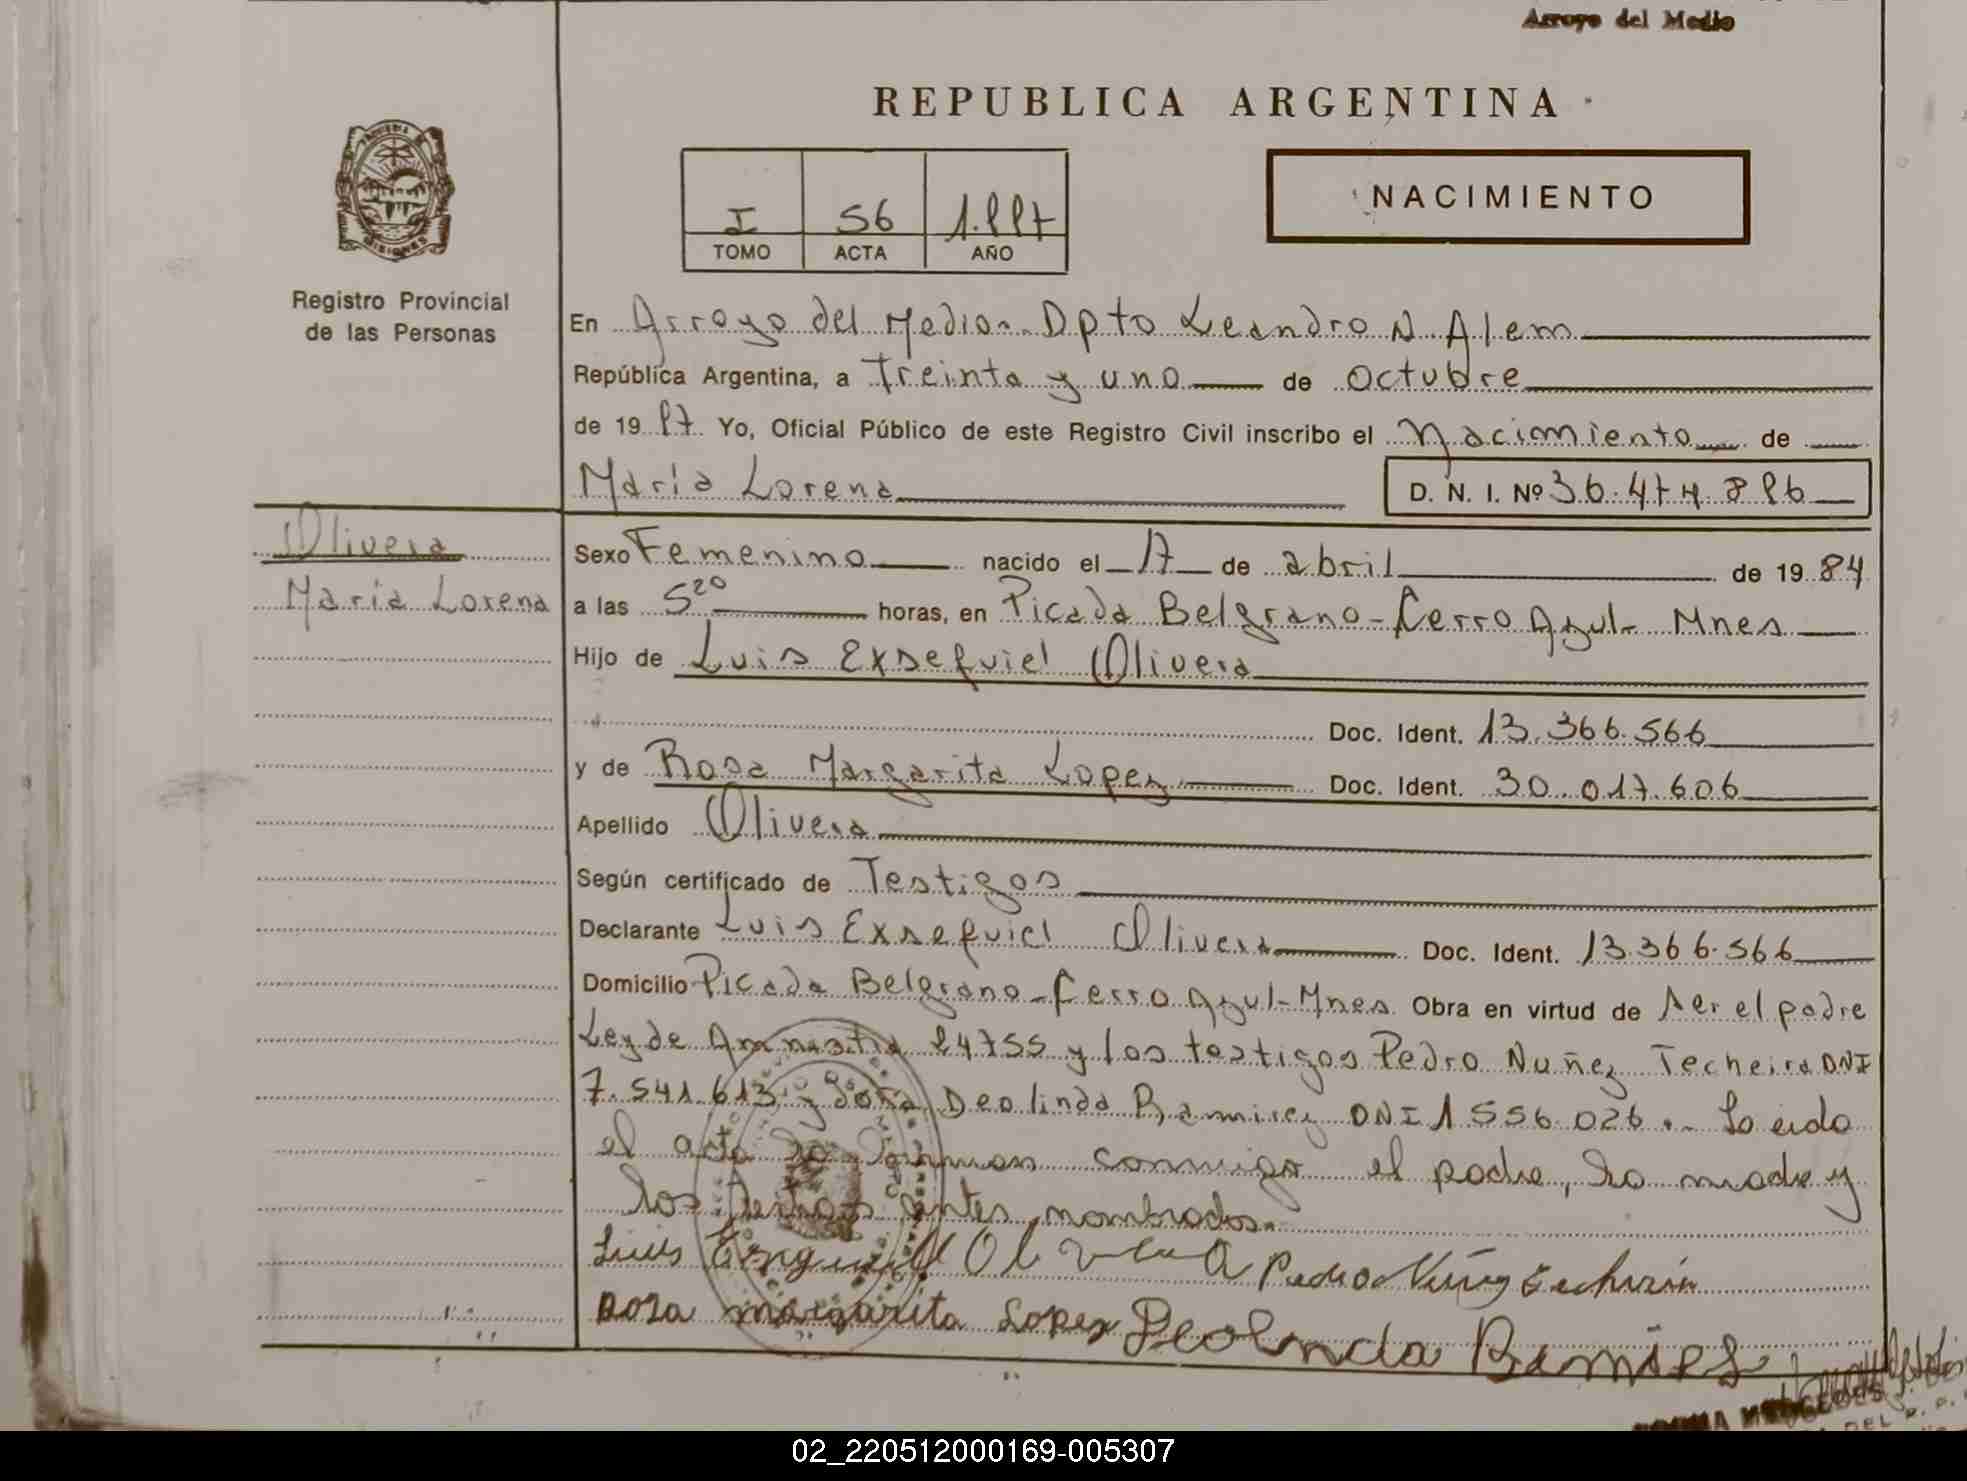 Arroyo del Medio
REPUBLICA ARGENTINA
NACIMIENTO
I 56 1.997
TOMO ACTA AÑO
MISIONES
Registro Provincial
de las Personas
En Arroyo del Medio. Dpto Leandro N. Alem
República Argentina, a Treinta y uno de Octubre
de 19 97 Yo, Oficial Público de este Registro Civil inscribo el Nacimiento de
María Lorena D. N. I. Nº 36.474.896
Olivera
María Lorena
Sexo Femenino nacido el 17 de abril de 19 84
a las 5 20 horas, en Picada Belgrano - Cerro Azul - Mnes
Hijo de Luis Exsequiel Olivera
Doc. Ident. 13.366.566
y de Rosa Margarita Lopez Doc. Ident. 30.017.606
Apellido Olivera
Según certificado de Testigos
Declarante Luis Exsequiel Olivera Doc. Ident. 13.366.566
Domicilio Picada Belgrano - Cerro Azul - Mnes. Obra en virtud de ser el padre
Ley de Amnistia 24755 y los testigos Pedro Nuñez Techeira DNI
7.541.613 y Doña Deolinda Ramirez DNI 1 556 026.- Leida
el acta la firman conmigo el padre, la madre y
los testigos antes nombrados.
Luis Olivera Pedro Nuñez
Rosa margarita Lopez Deolinda
02_220512000169-005307